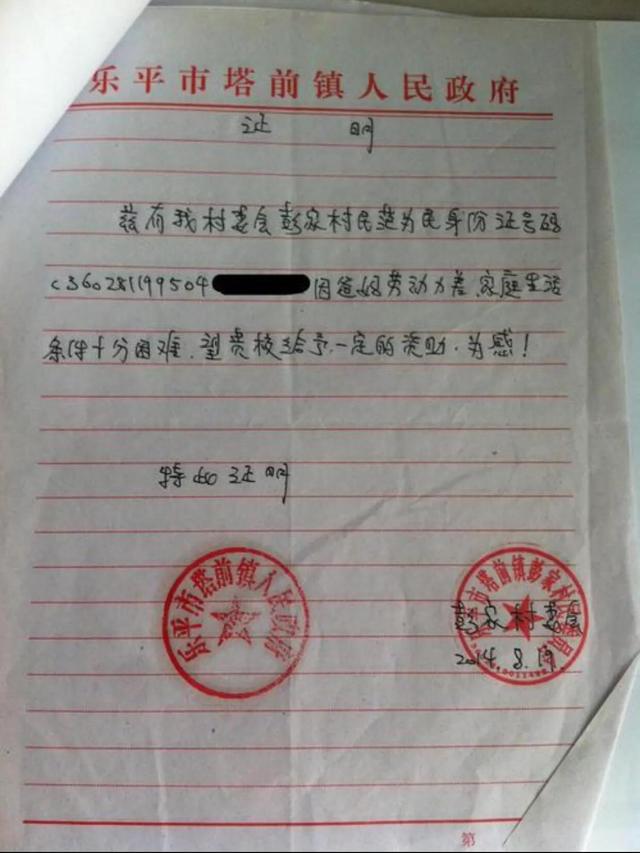 乐平市塔前镇人民政府
证 明
兹有我村委会彭家村民楚为民身份证号码
(360281199504 因爸妈劳动力差、家庭生活
条件十分困难,望贵校给予一定的资助.为感!
特此证明
乐平市塔前镇人民政府
乐平市塔前镇彭家村
彭家村委会
2014.8.19.
第